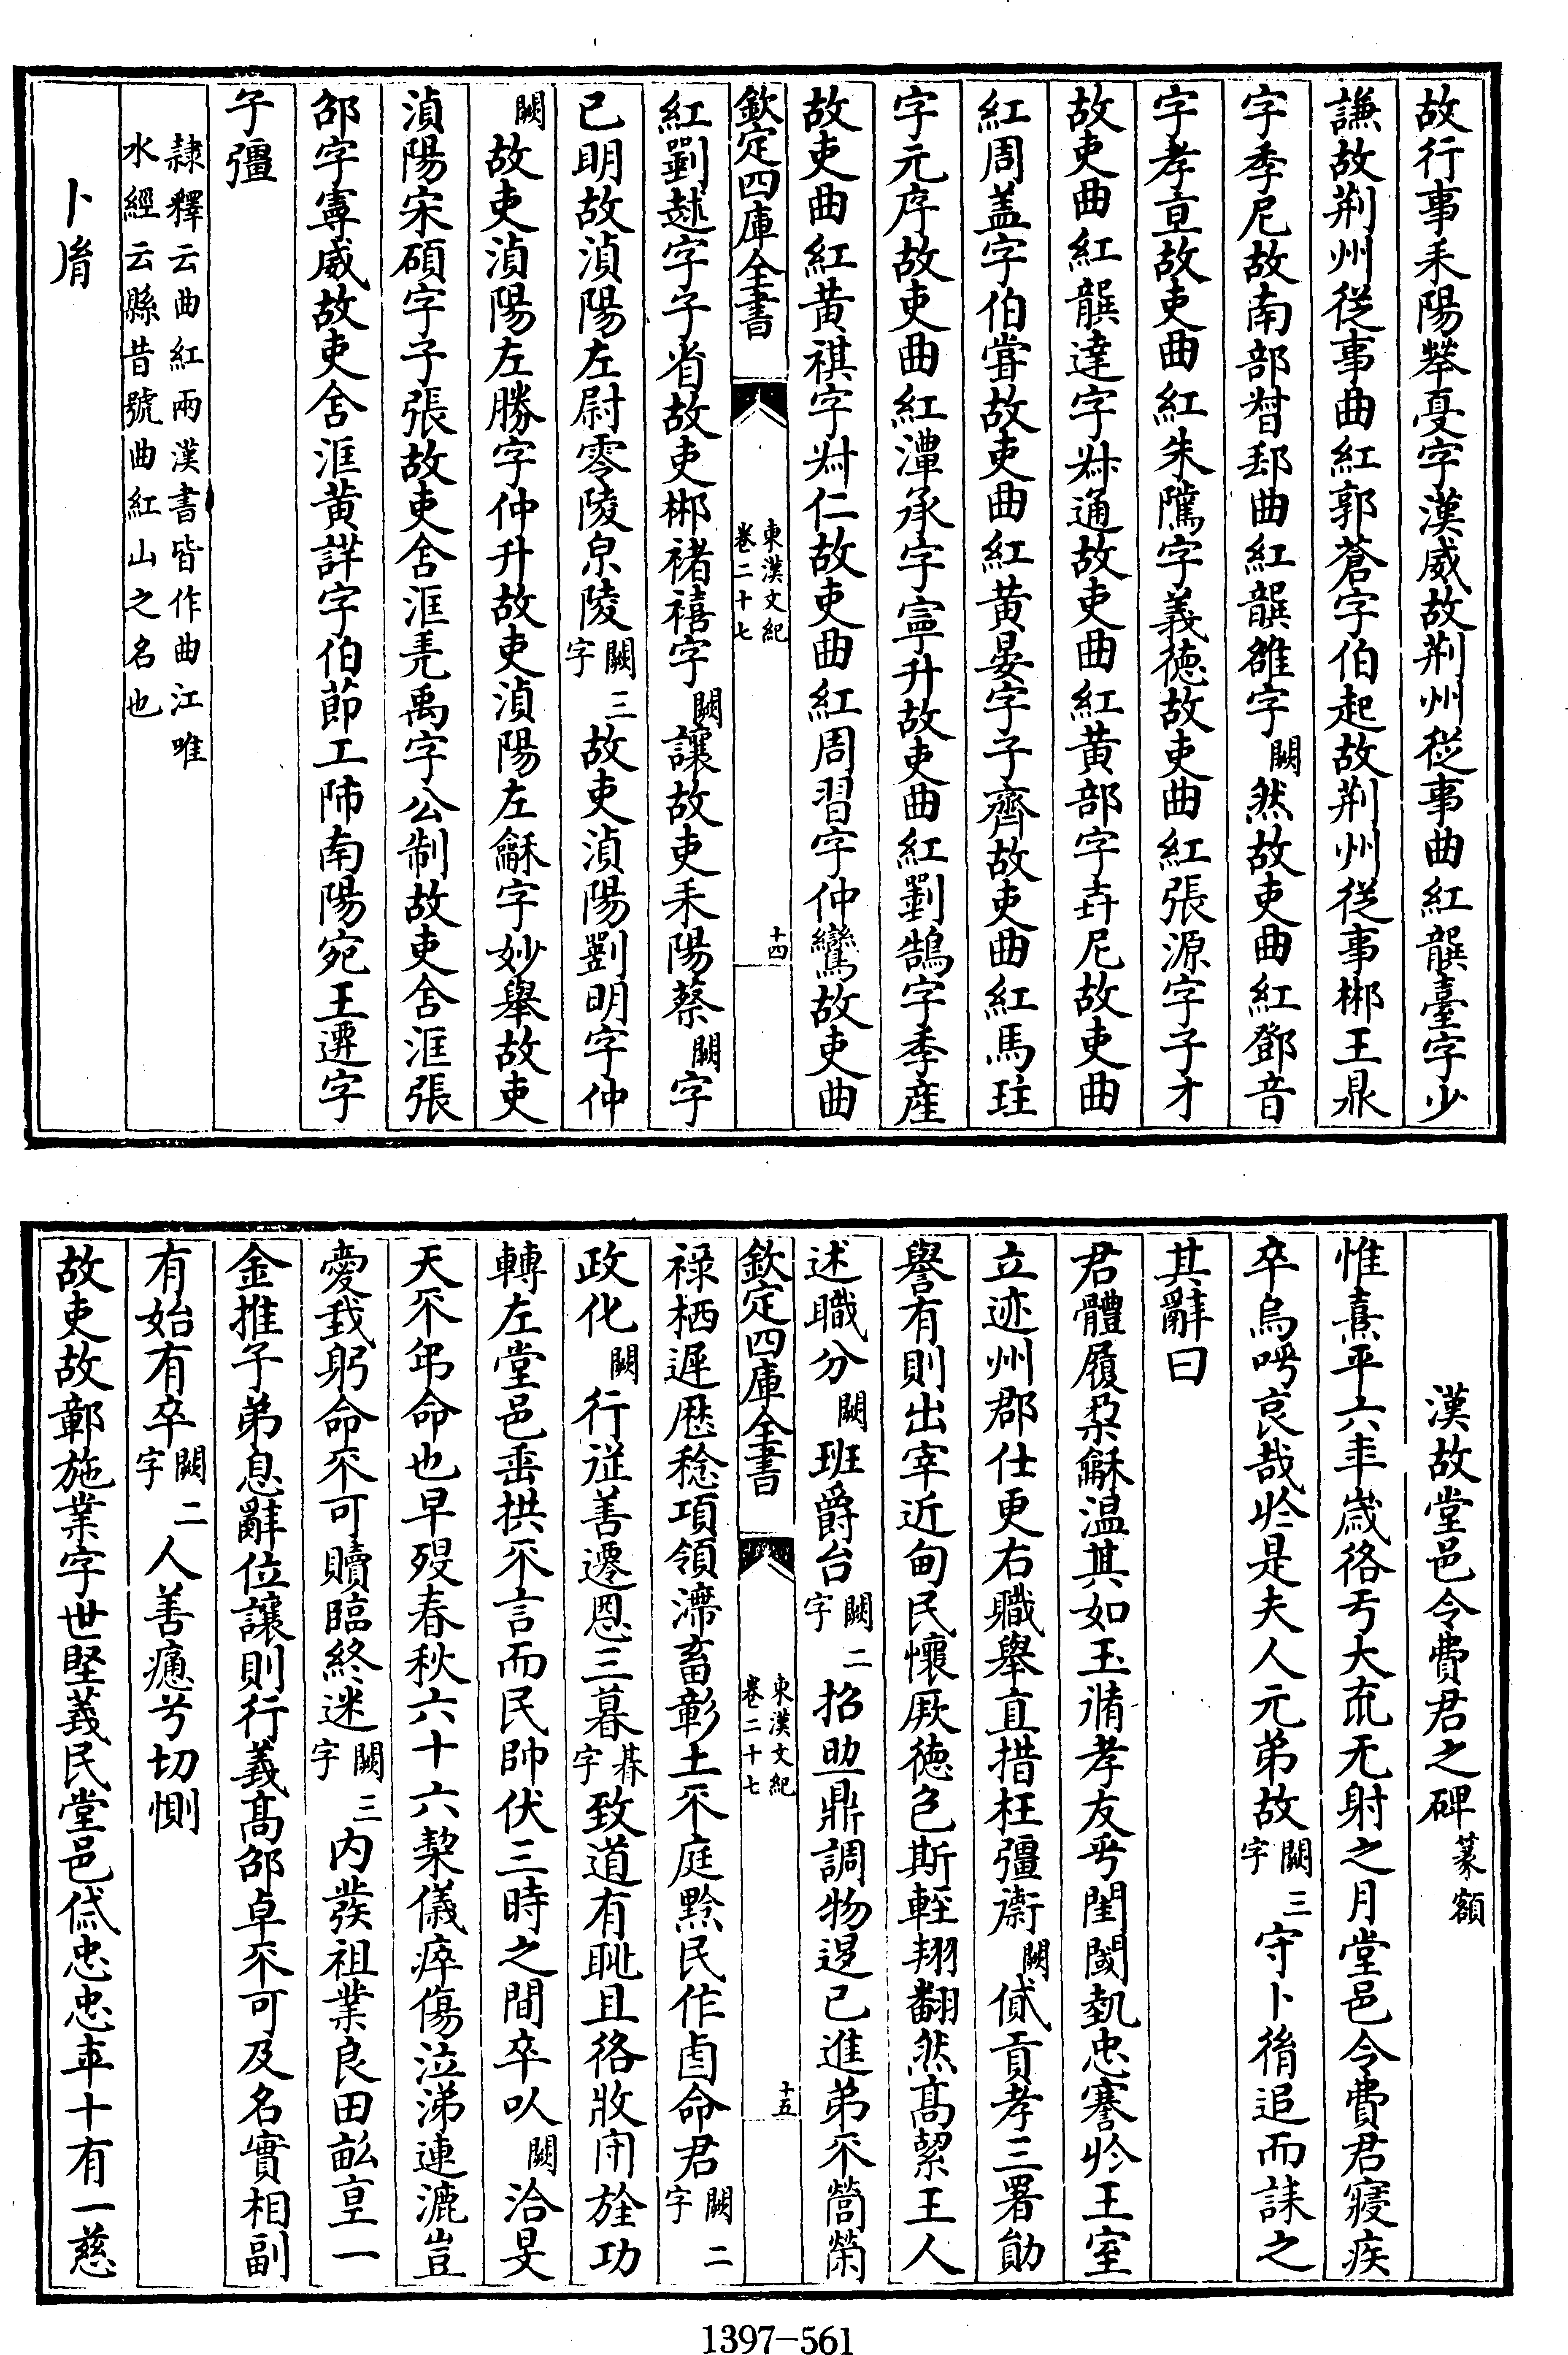 故行事耒陽犖㝊字漢威故荆州從事曲紅龔臺字少
謙故荆州從事曲紅郭蒼字伯起故荆州從事郴王鼎
字季尼故南部督郵曲紅龔雒字闕然故吏曲紅鄧音
字孝亘故吏曲紅朱隲字義徳故吏曲紅張源字子才
故吏曲紅龔達字尗通故吏曲紅黄部字壵尼故吏曲
紅周盖字伯甞故吏曲紅黄晏字子齊故吏曲紅馬珪
字元序故吏曲紅潭承字寧升故吏曲紅劉鵠字季産
故吏曲紅黄祺字尗仁故吏曲紅周習字仲鸞故吏曲
欽定四庫全書
東漢文紀
卷二十七
十四
紅劉越字子省故吏郴褚禧字闕讓故吏耒陽蔡闕字
已明故湞陽左尉零陵泉陵闕三字故吏湞陽劉明字仲
闕故吏湞陽左勝字仲升故吏湞陽左龢字妙舉故吏
湞陽宋碩字子張故吏含洭㒵禹字公制故吏含洭張
邵字寗威故吏含洭黄詳字伯節工師南陽宛王遷字
子彊
隸釋云曲紅兩漢書皆作曲江唯
水經云縣昔號曲紅山之名也
卜胤
漢故堂邑令費君之碑篆額
惟熹平六年歲格亏大㐬无射之月堂邑令費君寢疾
卒烏呼哀哉於是夫人元弟故闕三字守卜䘕追而誄之
其辭曰
君體履柔龢温其如玉脩孝友乎閨閾執忠謇於王室
立迹州郡仕更右職舉直措枉彊衛闕貣貢孝三署勛
譽有則出宰近甸民懷厥徳色斯輊翔翻然高絜王人
述職分闕班爵台闕二字招助鼎調物遑已進弟不營榮
欽定四庫全書
東漢文紀
卷二十七
十五
祿栖遲歴稔項領滯畜彰土不庭黔民作鹵命君闕二字
政化闕行従善遷恩三暮朞字致道有恥且格牧守旌功
轉左堂邑垂拱不言而民帥伏三時之間卒以闕洽旻
天不弔命也早歿春秋六十六棃儀瘁傷泣涕連漉豈
愛我躬命不可贖臨終迷闕三字内發祖業良田畝直一
金推子弟息辭位讓則行義高邵卓不可及名實相副
有始有卒闕二字人善癒兮切惻
故吏故鄣施業字世堅義民堂邑㒗忠忠年十有一慈
1397-561